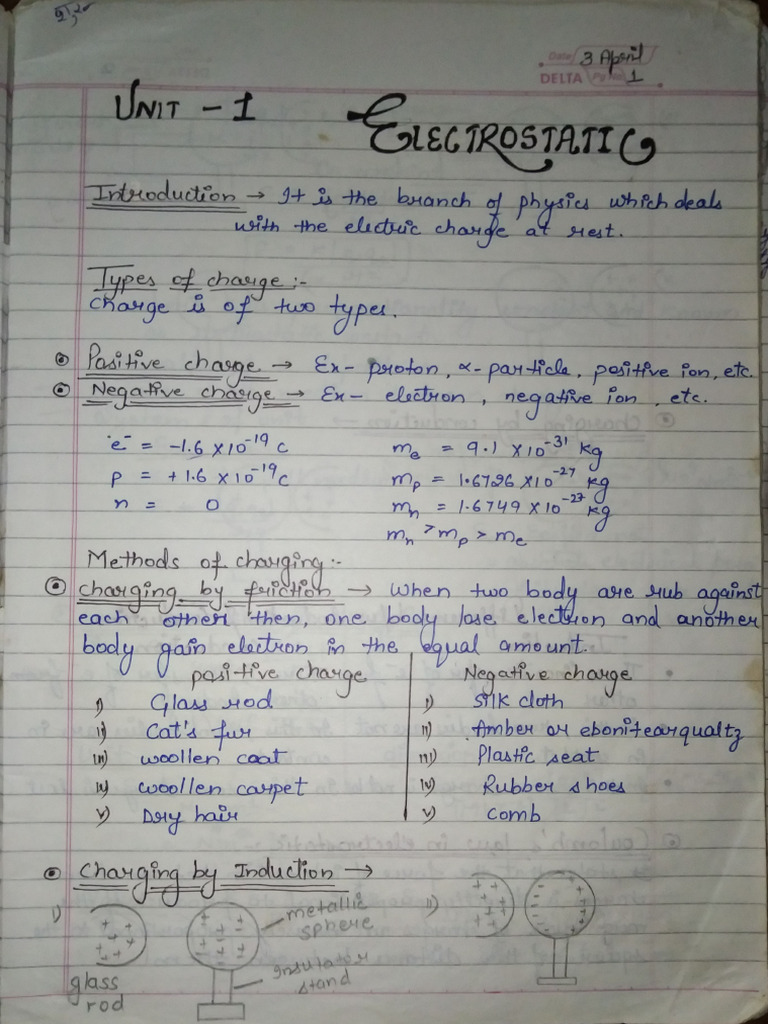 3 April
Date
DELTA Pg No. 1
UNIT - 1 ELECTROSTATIC
Introduction → It is the branch of physics which deals
with the electric charge at rest.
Types of charge :-
charge is of two types.
Positive charge → Ex- proton, α-particle, positive ion, etc.
Negative charge → Ex- electron, negative ion, etc.
e⁻ = -1.6 × 10⁻¹⁹ C
p = +1.6 × 10⁻¹⁹ C
n = 0
mₑ = 9.1 × 10⁻³¹ kg
mₚ = 1.6726 × 10⁻²⁷ kg
mₙ = 1.6749 × 10⁻²⁷ kg
mₙ > mₚ > mₑ
Methods of charging :-
charging by friction → When two body are rub against
each other then, one body lose electron and another
body gain electron in the equal amount.
positive charge
i) Glass rod
ii) Cat's fur
iii) woollen coat
iv) woollen carpet
v) Dry hair
Negative charge
i) Silk cloth
ii) Amber or ebonite or qualtz
iii) Plastic seat
iv) Rubber shoes
v) Comb
Charging by Induction →
i)
glass
rod
metallic
sphere
insulator
stand
ii)